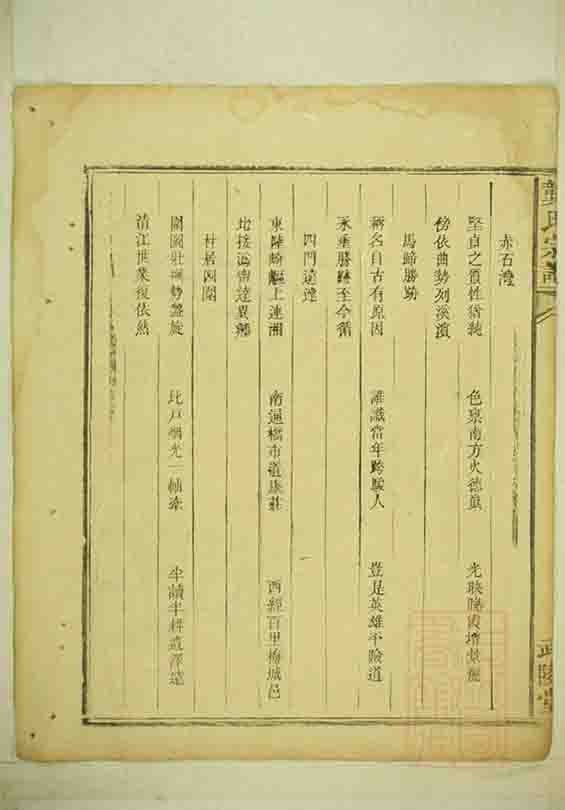 龔氏宗譜
武陵堂
赤石灣
堅貞之質性
色 南方火德
光映 霞增
傍依曲勢列溪濱
馬蹄勝跡
稱名自古有原因 誰識當年跨駿人 豈是英雄平險道
永垂勝蹟至今循
四門遠達
東 崎嶇上連湘 南通橋市道康莊 西經百里梅城邑
北接 達異鄉
村居四圍
閭閻壯 勢盤旋 比戶烟光一軸 半讀半耕遺澤遠
清江世業復依然